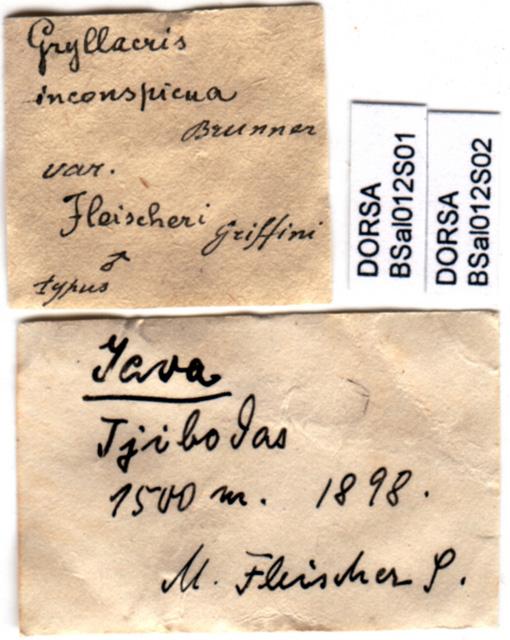 Gryllacris
inconspicua
Brunner
var.
Fleischeri Griffini
♂
typus
DORSA
BSal012S01
DORSA
BSal012S02
Java
Tjibodas
1500 m. 1898.
M. Fleischer S.